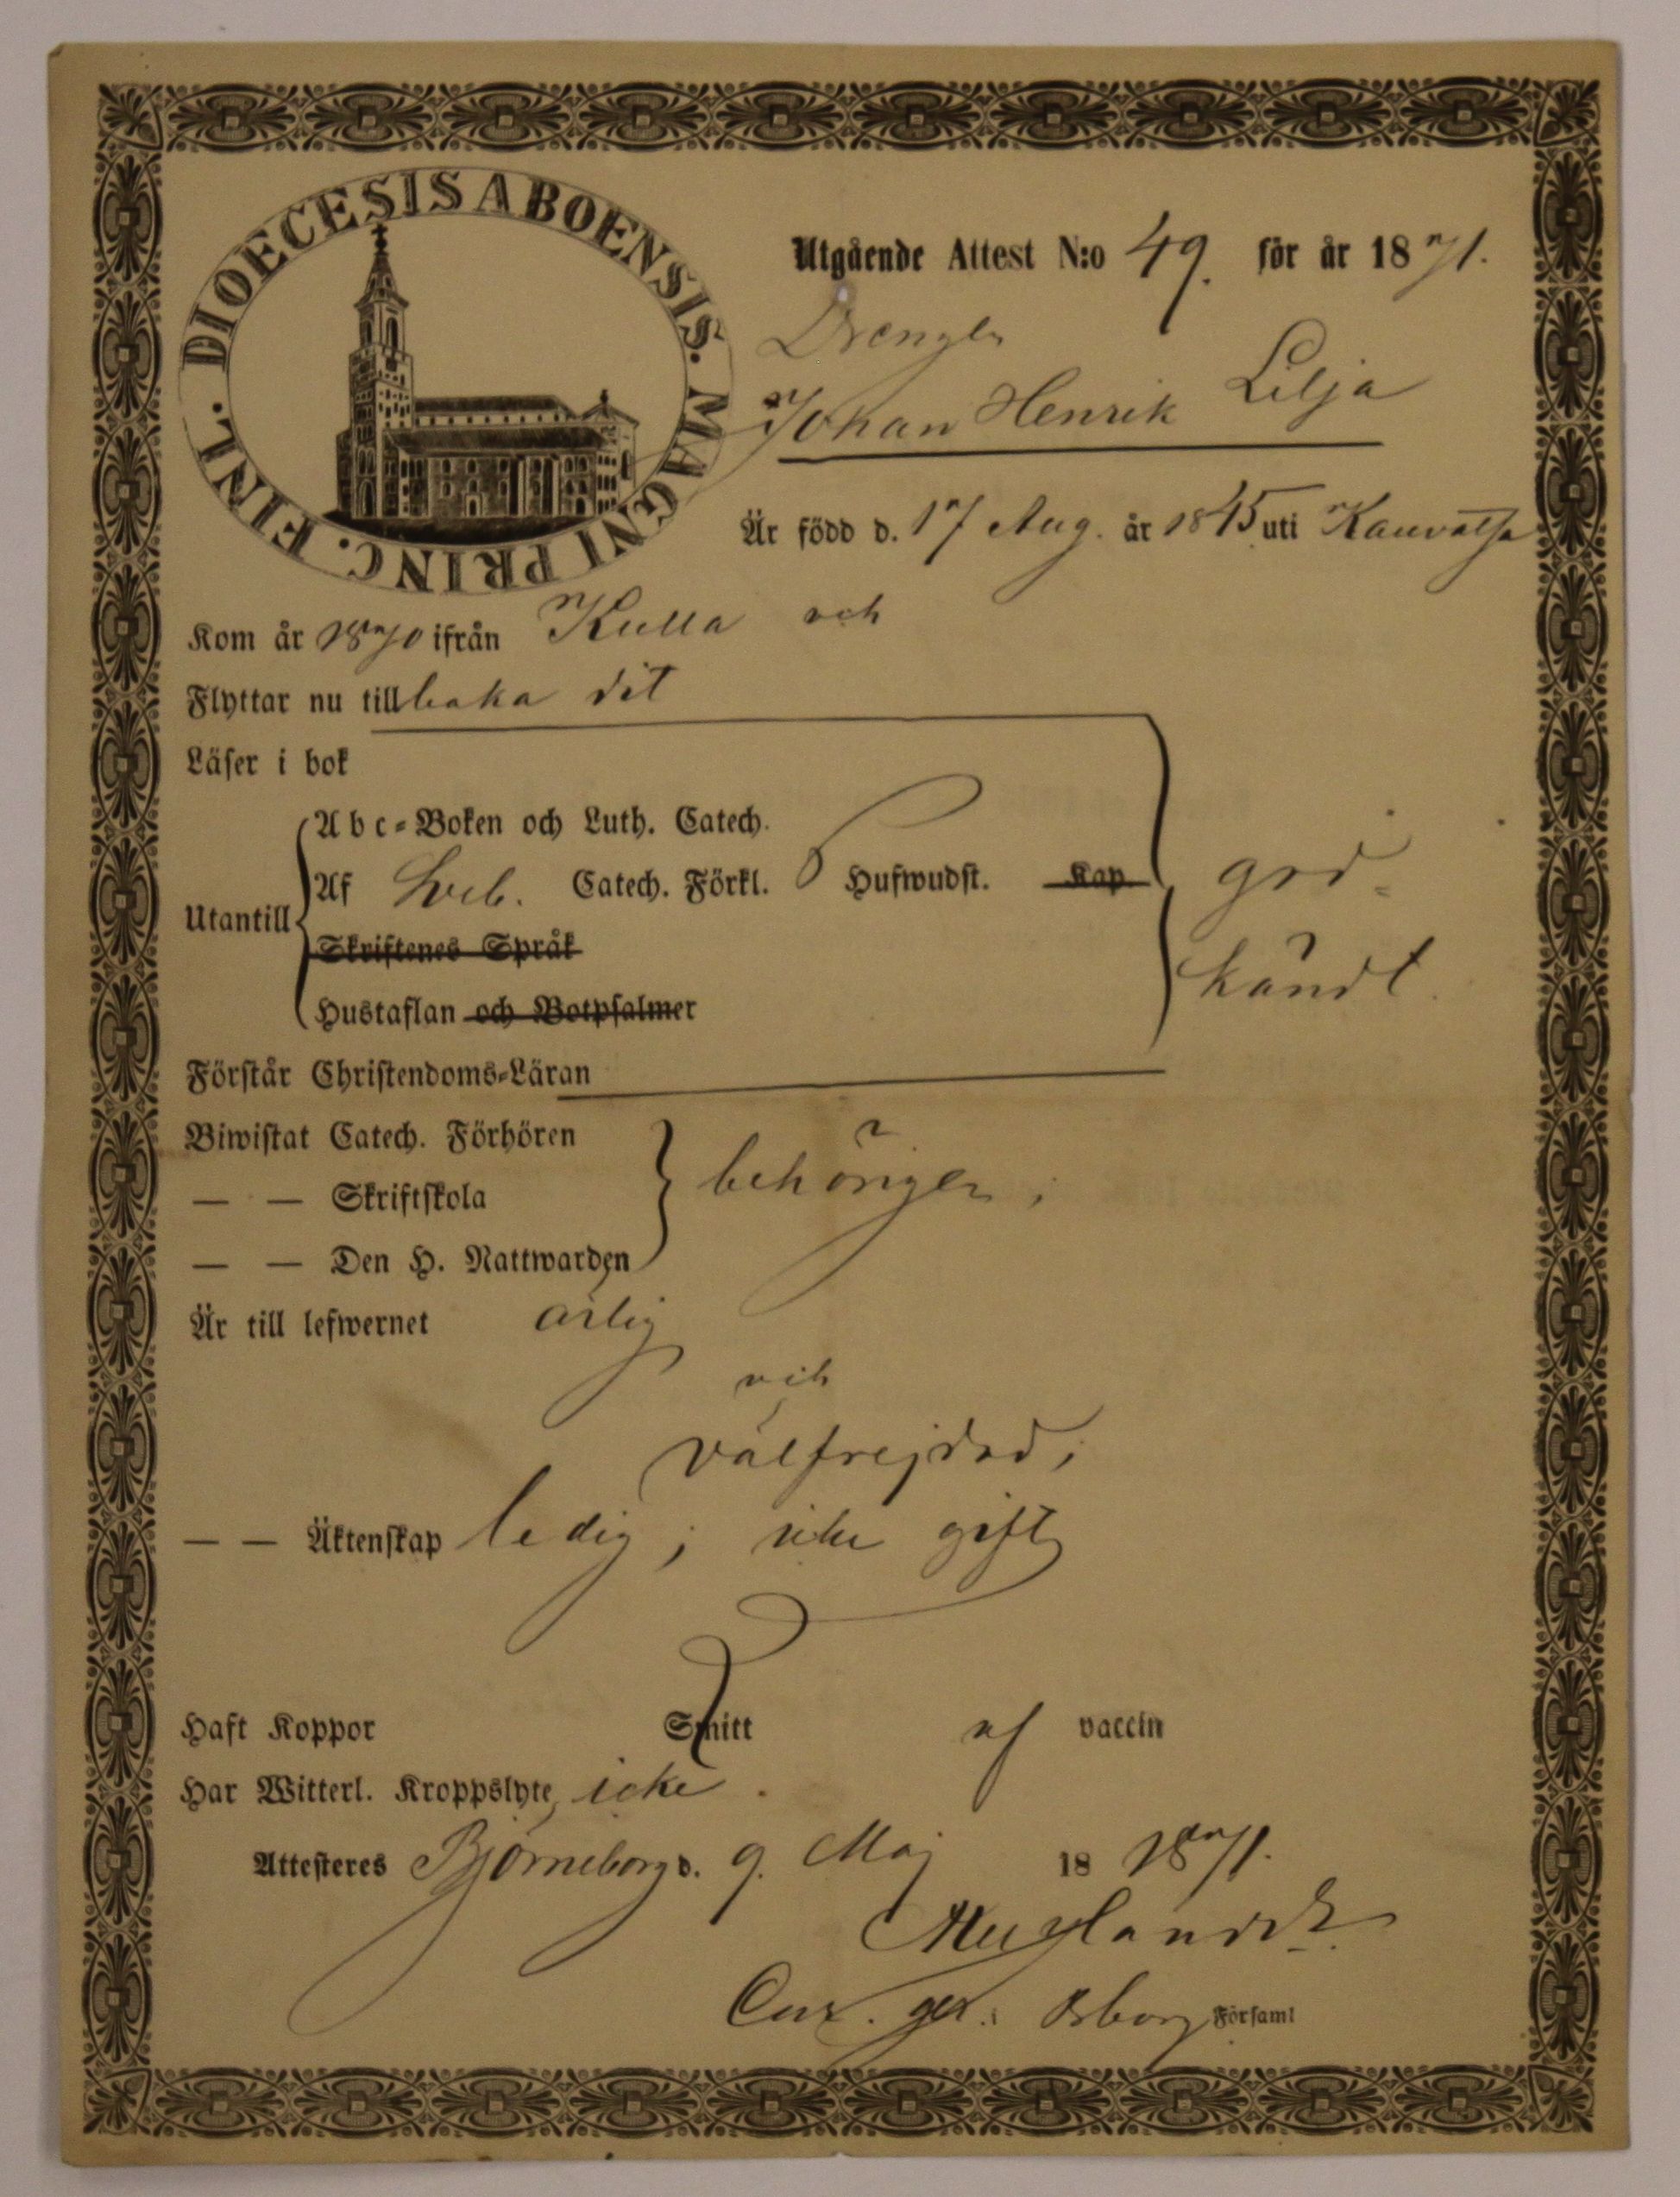 DIOECESIS ABOENSIS. MAGNI PRINC. FINL.
Utgående Attest N:o 49. för år 1871.
Drengen
Johan Henrik Lilja
Är född d. 17 Aug. år 1845 uti Kauvatsa
Kom år 1870 ifrån Kulla och
Flyttar nu tillbaka dit
Läser i bok
Abc-Boken och Luth. Catech.
Utantill Af Sveb. Catech. Förkl. Hufwudst. Kap
Skriftenes Språk
Hustaflan och Botpsalmer
god-
kändt.
Förstår Christendoms-Läran
Biwistat Catech. Förhören
— — Skriftskola behörigen;
— — Den H. Nattwarden
Är till lefwernet ärlig
och
välfrejdad;
— — Äktenskap ledig; icke gift
Haft Koppor Smitt af vaccin
Har Witterl. Kroppslyte, icke.
Attesteres Björneborg d. 9. Maj 18 1871.
i Bborg Församl